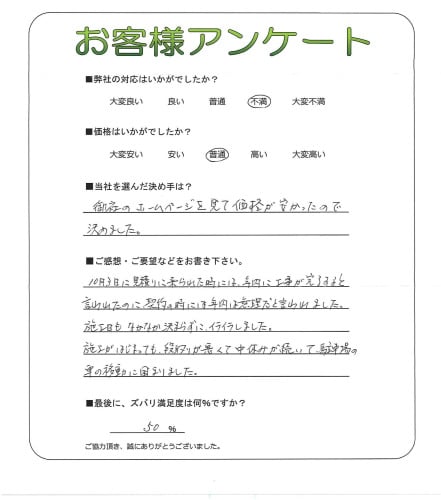 お客様アンケート
■弊社の対応はいかがでしたか?
大変良い 良い 普通 不満 大変不満
■価格はいかがでしたか?
大変安い 安い 普通 高い 大変高い
■当社を選んだ決め手は?
御社のホームページを見て価格が安かったので
決めました。
■ご感想・ご要望などをお書き下さい。
10月3日に見積りに来られた時には、年内に工事が完了すると
言われたのに契約の時には年内は無理だと言われました。
施工日もなかなか決まらずに、イライラしました。
施工がはじまっても、段取りが悪くて中休みが続いて駐車場の
車の移動に困りました。
■最後に、ズバリ満足度は何%ですか?
50 %
ご協力頂き、誠にありがとうございました。